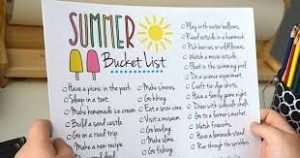 SUMMER
Bucket List
Have a picnic in the park.
Sleep in a tent.
Make homemade ice cream
Build a sand castle.
Go on a road trip.
Make a new recipe
Make s'mores.
Go hiking.
Eat a snow cone.
Visit a museum
Go bowling.
Make slime.
Go fishing.
Play with water balloons.
Read outside in a hammock
Pick berries or wildflowers.
Watch a movie outside
Float in the swimming pool
Do a science experiment
Craft tie dye shirts.
Draw with sidewalk chalk.
Go to a farmers market
Watch fireworks.
Have a lemonade stand
Run through the sprinklers.